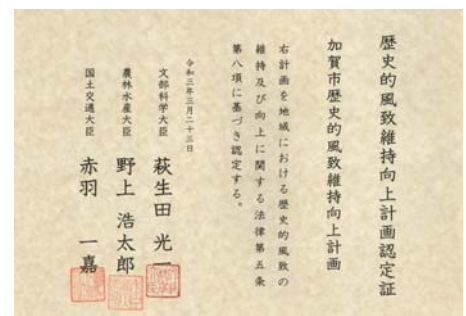 歴史的風致維持向上計画認定証
加賀市歴史的風致維持向上計画
右計画を地域における歴史的風致の
維持及び向上に関する法律第五条
第八項に基づき認定する。
令和三年三月二十三日
文部科学大臣 萩生田 光一
農林水産大臣 野上 浩太郎
国土交通大臣 赤羽 一嘉